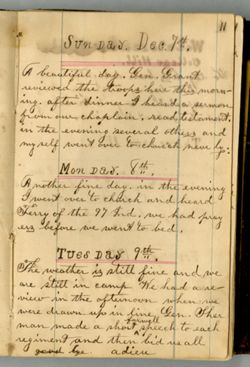 11
Sunday. Dec. 7th.
A beautiful day. Gen. Grant
reviewed the troops here this mor-
ning. after dinner I heard a sermon
from our chaplain, read testament,
in the evening several others and
myself went over to church nearby.
Monday. 8th.
Another fine day. in the evening
I went over to church and heard
Terry of the 97 Ind. we had pray
ers before we went to bed.
Tuesday 9th.
The weather is still fine and we
are still in camp. We had a re-
view in the afternoon when we
were drawn up in line, Gen. Sher
man made a short farewell speech to each
regiment and then bid us all
good bye. adieu